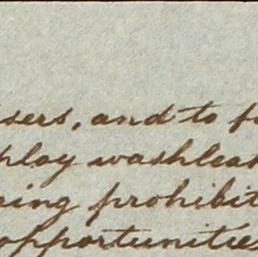 sers, and to f
play washleat
ning prohibit
opportunities